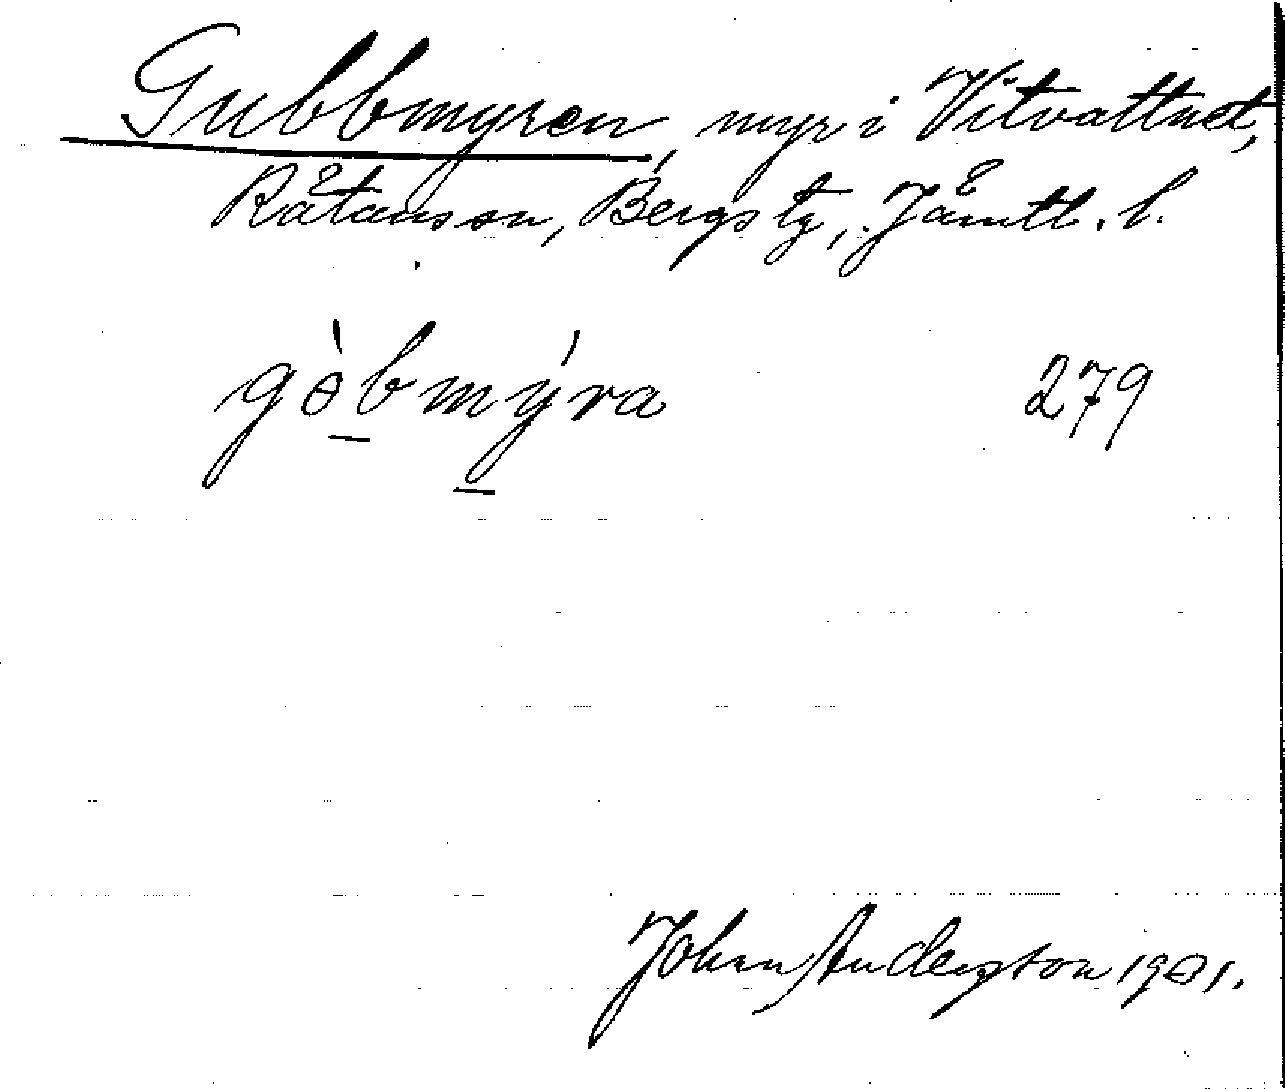 Gubbmyren, myr i Vitvattnet,
Råtans sn, Bergs tg, Jämtl. l.
gɵ̀bmýra 279
John Anderzton 1901.